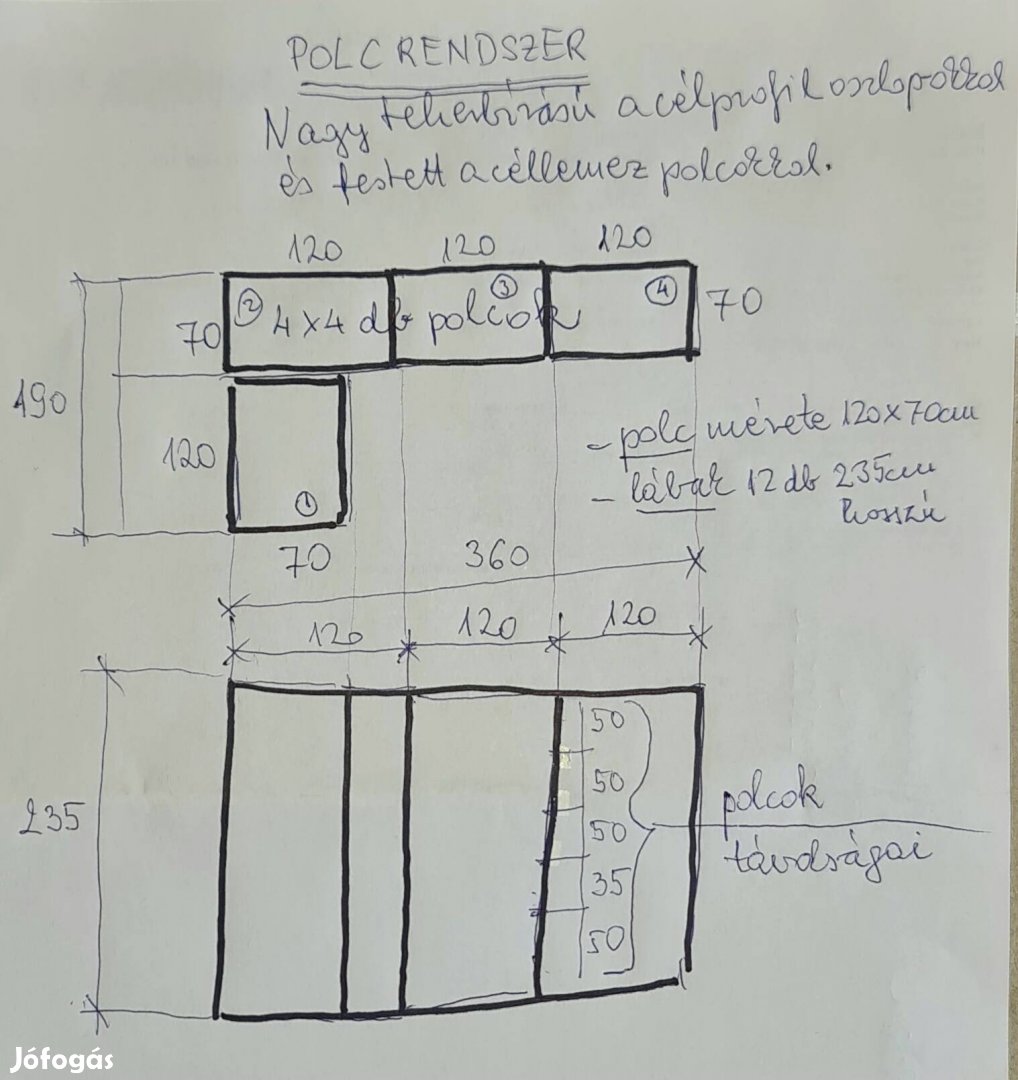 POLCRENDSZER
Nagy teherbírású acélprofil oszlopokkal
és festett acéllemez polcokkal.
120 120 120
② 4x4 db polcok ③ ④
70 70
190
120
①
- polc mérete 120x70cm
- lábak 12 db 235cm
hosszú
70 360
120 120 120
50
50
235
polcok
50
távolságai
35
50
Jófogás